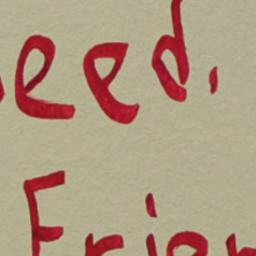 eed.
Frien